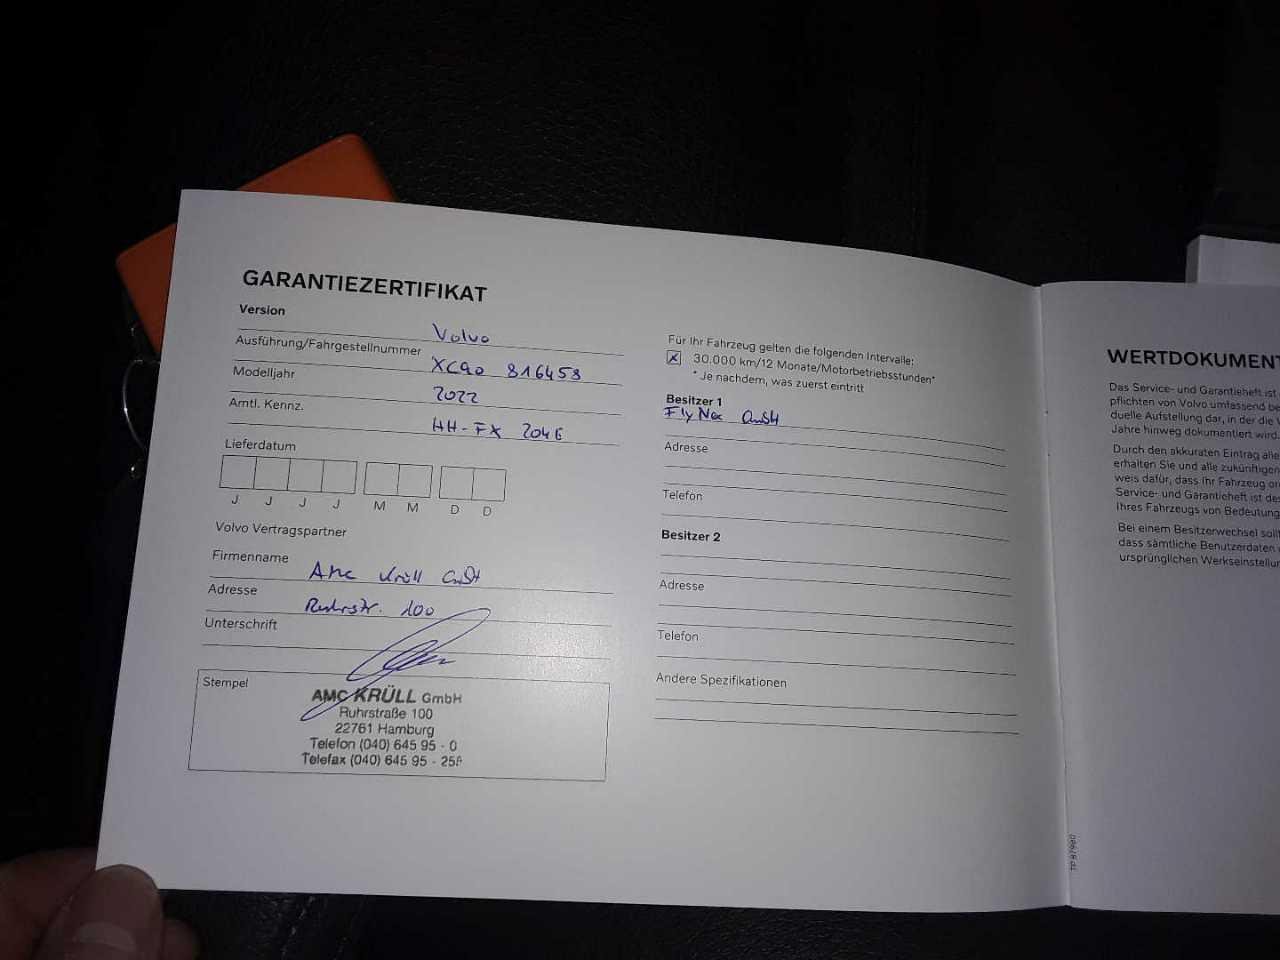 GARANTIEZERTIFIKAT
Version Volvo
Ausführung/Fahrgestellnummer XC90 816453
Modelljahr 2022
Amtl. Kennz. HH-FX 2046
Lieferdatum
J J J J M M D D
Volvo Vertragspartner
Firmenname AMC Krüll GmbH
Adresse Ruhrstr. 100
Unterschrift
Stempel
AMC KRÜLL GmbH
Ruhrstraße 100
22761 Hamburg
Telefon (040) 645 95 - 0
Telefax (040) 645 95 - 258
Für Ihr Fahrzeug gelten die folgenden Intervalle:
x 30.000 km/12 Monate/Motorbetriebsstunden*
* Je nachdem, was zuerst eintritt
Besitzer 1
GmbH
Adresse
Telefon
Besitzer 2
Adresse
Telefon
Andere Spezifikationen
WERTDOKUMENT
Das Service- und Garantieheft ist
pflichten von Volvo umfassend
duelle Aufstellung dar, in der die
Jahre hinweg dokumentiert wird.
Durch den akkuraten Eintrag
erhalten Sie und alle zukünftigen
weis dafür, dass Ihr Fahrzeug
Service- und Garantieheft ist
Ihres Fahrzeugs von Bedeutung
Bei einem Besitzerwechsel
dass sämtliche Benutzerdaten
ursprünglichen